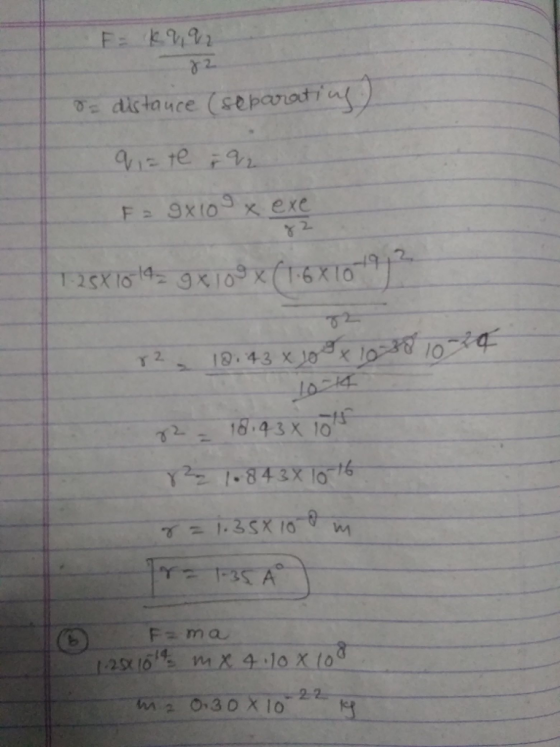 F = k q₁ q₂ / r²
r = distance (separating)
q₁ = +e = q₂
F = 9×10⁹ × e×e / r²
1.25×10⁻¹⁴ = 9×10⁹ × (1.6×10⁻¹⁹)² / r²
r² = 18.43 × 10⁹ × 10⁻³⁸ 10⁻²⁴ / 10⁻¹⁴
r² = 18.43 × 10⁻¹⁵
r² = 1.843×10⁻¹⁶
r = 1.35×10⁻⁸ m
r = 1.35 A°
(b) F = ma
1.25×10⁻¹⁴ = m × 4.10 × 10⁸
m = 0.30 × 10⁻²² kg